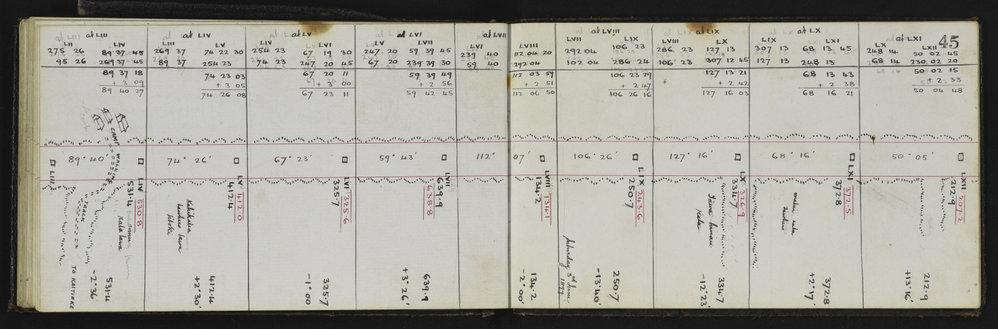 45
at LIII
LII LIV
275 26 89 37 45
95 26 269 37 45
89 37 18
+ 3 09
89 40 27
at LIV
LIII LV
269 37 74 22 30
89 37 254 23
74 23 03
+ 3 05
74 26 08
at LV
LIV LVI
254 23 67 19 30
74 23 247 20 45
67 20 11
+ 3 00
67 23 11
at LVI
LV LVII
247 20 59 39 45
67 20 239 39 30
59 39 49
+ 2 56
59 42 45
at LVII
LVI LVIII
239 40 112 04 20
59 40 292 04
112 03 59
+ 2 51
112 06 50
at LVIII
LVII LIX
292 04 106 23
112 04 286 24
106 23 29
+ 2 47
106 26 16
at LIX
LVIII LX
286 23 127 13
106 23 307 12 45
127 13 21
+ 2 42
127 16 03
at LX
LIX LXI
307 13 68 13 45
127 13 248 13
68 13 43
+ 2 38
68 16 21
LXII
248 14 50 02 45
68 14 230 02 20
50 02 15
+ 2 33
50 04 48
CAMP
89° 40'
74° 26'
67° 23'
59° 43'
112° 07'
106° 26'
127° 16'
68° 16'
50° 05'
LIII
LIV
531.4 530.8
TRACK
TO KAITIEKE
531.4
-2° 36'
LV
412.4 412.0
412.4
+2° 30'
LVI
325.7 325.6
325.7
-1° 00'
LVII
639.9 638.8
639.9
+3° 26'
LVIII
134.2 134.1
134.2
-2° 00'
LIX
250.7 243.6
Saturday 3rd June
250.7
-13° 40'
LX
334.7 326.9
334.7
-12° 23'
LXI
372.8 372.5
372.8
+2° 17'
LXII
212.9 207.2
212.9
+13° 16'